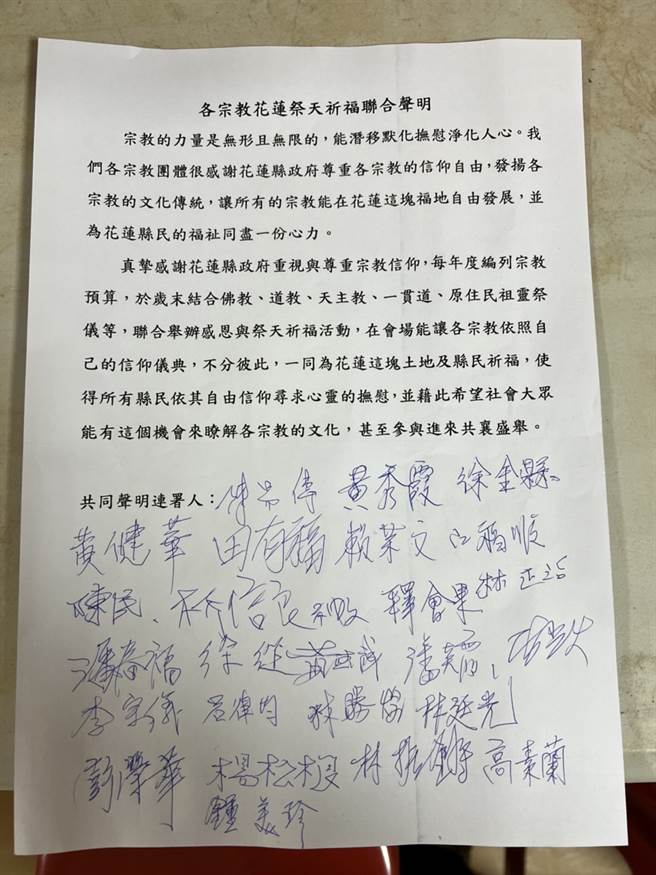 各宗教花蓮祭天祈福聯合聲明
宗教的力量是無形且無限的，能潛移默化撫慰淨化人心。我
們各宗教團體很感謝花蓮縣政府尊重各宗教的信仰自由，發揚各
宗教的文化傳統，讓所有的宗教能在花蓮這塊福地自由發展，並
為花蓮縣民的福祉同盡一份心力。
真摯感謝花蓮縣政府重視與尊重宗教信仰，每年度編列宗教
預算，於歲末結合佛教、道教、天主教、一貫道、原住民祖靈祭
儀等，聯合舉辦感恩與祭天祈福活動，在會場能讓各宗教依照自
己的信仰儀典，不分彼此，一同為花蓮這塊土地及縣民祈福，使
得所有縣民依其自由信仰尋求心靈的撫慰，並藉此希望社會大眾
能有這個機會來瞭解各宗教的文化，甚至參與進來共襄盛舉。
共同聲明連署人： 黃秀霞
黃健華 田有福 賴榮文
陳民、 釋會果
潘春福
李宗儀 林廷光
彭榮華 楊松投 高素蘭
鍾美珍